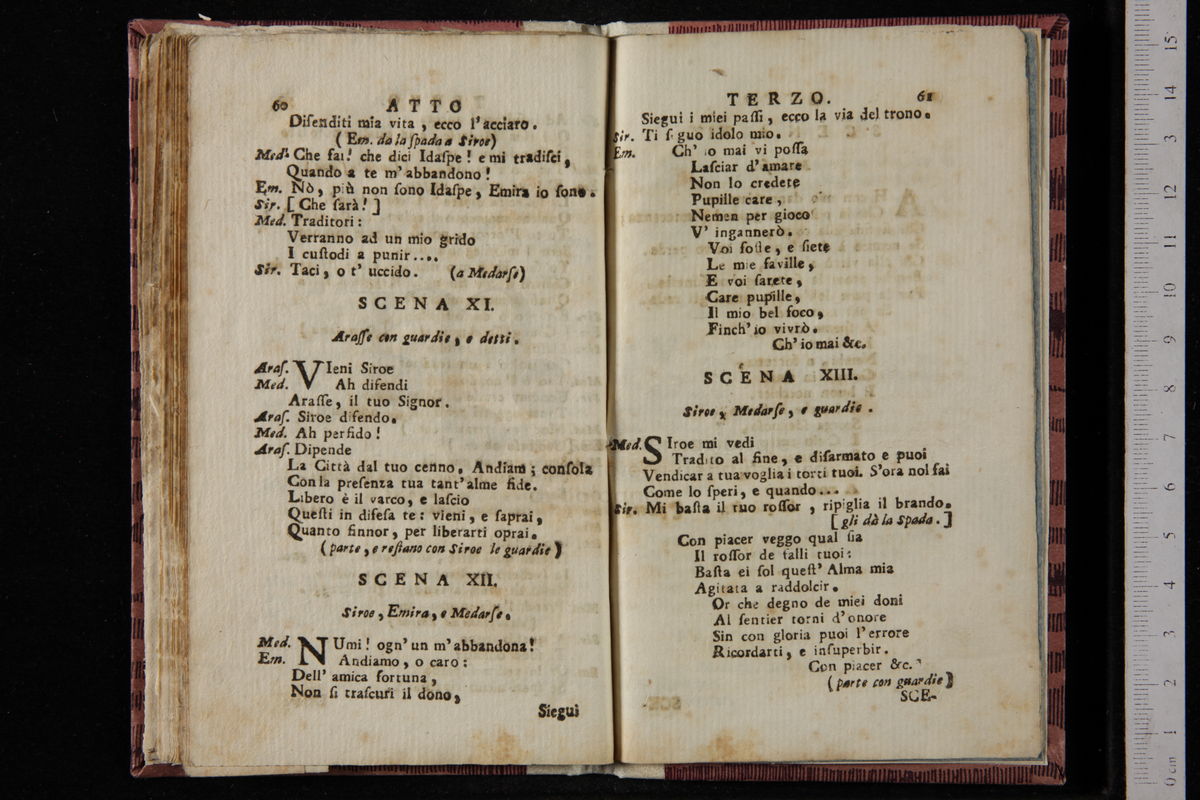 60 ATTO
Difenditi mia vita , ecco l'acciaro.
( Em. da la ſpada a Siroe)
Med. Che fai! che dici Idaſpe ! e mi tradiſci,
Quando a te m'abbandono !
Em. Nò, più non ſono Idaſpe, Emira io ſono.
Sir. [ Che ſarà! ]
Med. Traditori :
Verranno ad un mio grido
I cuſtodi a punir....
Sir. Taci, o t' uccido. (a Medarſe)
SCENA XI.
Araſſe con guardie, e detti.
Araſ. VIeni Siroe
Med. Ah difendi
Araſſe, il tuo Signor.
Araſ. Siroe difendo.
Med. Ah perfido !
Araſ. Dipende
La Città dal tuo cenno. Andiam ; conſola
Con la preſenza tua tant'alme fide.
Libero è il varco, e laſcio
Queſti in difeſa te : vieni, e ſaprai,
Quanto finnor, per liberarti oprai.
(parte, e reſtano con Siroe le guardie)
SCENA XII.
Siroe, Emira, e Medarſe.
Med. NUmi! ogn'un m'abbandona!
Em. Andiamo, o caro :
Dell' amica fortuna,
Non ſi traſcuri il dono,
Siegui
TERZO. 61
Siegui i miei paſſi, ecco la via del trono.
Sir. Ti ſieguo idolo mio.
Em. Ch' io mai vi poſſa
Laſciar d'amare
Non lo credete
Pupille care,
Nemen per gioco
V' ingannerò.
Voi foſte, e ſiete
Le mie faville,
E voi ſarete,
Care pupille,
Il mio bel foco,
Finch'io vivrò.
Ch'io mai &c.
SCENA XIII.
Siroe, Medarſe, e guardie.
Med. SIroe mi vedi
Tradito al fine, e diſarmato e puoi
Vendicar a tua voglia i torti tuoi. S'ora nol fai
Come lo ſperi, e quando...
Sir. Mi baſta il tuo roſſor , ripiglia il brando.
[gli dà la Spada.]
Con piacer veggo qual ſia
Il roſſor de falli tuoi:
Baſta ei ſol queſt' Alma mia
Agitata a raddolcir.
Or che degno de miei doni
Al ſentier torni d'onore
Sin con gloria puoi l'errore
Ricordarti, e inſuperbir.
Con piacer &c.
(parte con guardie)
SCE-
0 cm 1 2 3 4 5 6 7 8 9 10 11 12 13 14 15